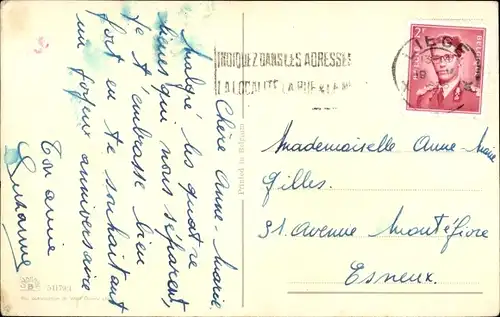 Chère Anne-Marie
Malgré les quatre
lieues qui nous séparent,
je t'embrasse bien
fort en te souhaitant
un joyeux anniversaire
Ton amie
Suzanne
511793
Printed in Belgium
INDIQUEZ DANS LES ADRESSES
LA LOCALITE LA RUE & LE
LIEGE
BELGIQUE
Mademoiselle Anne-Marie
Gilles.
31. Avenue Montéfiore
Esneux.